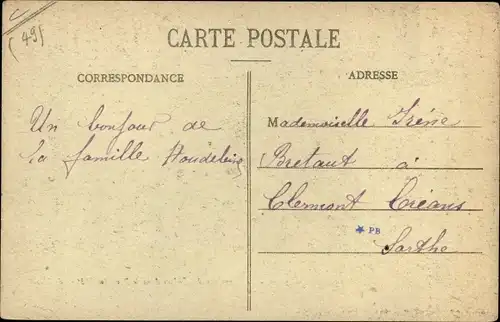 (49)
CARTE POSTALE
CORRESPONDANCE
ADRESSE
Un bonjour de
la famille Houdebine
Mademoiselle Irène
Bretaut à
Clermont Créans
* PB
Sarthe